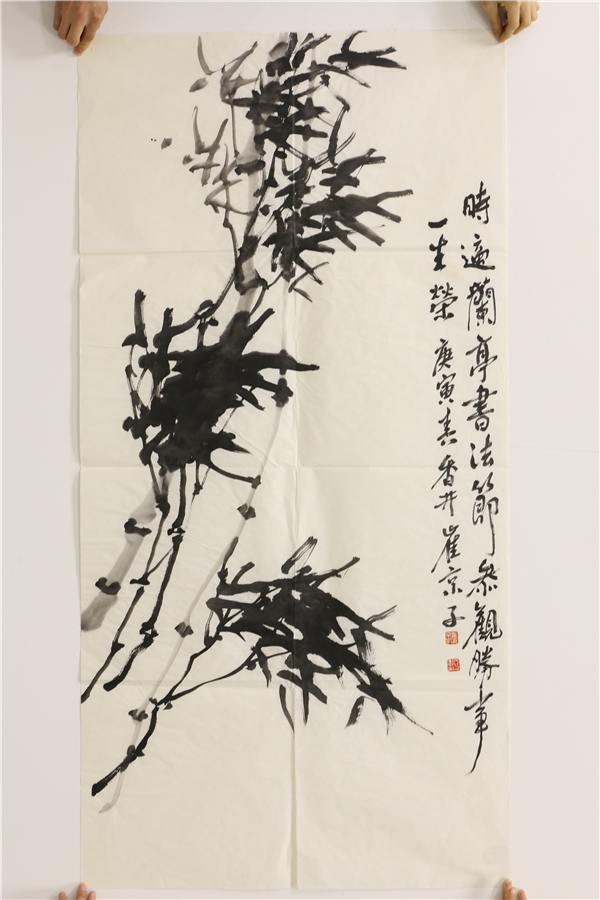 時適蘭亭書法節参觀勝事
一生榮 庚寅春 香井 崔京子